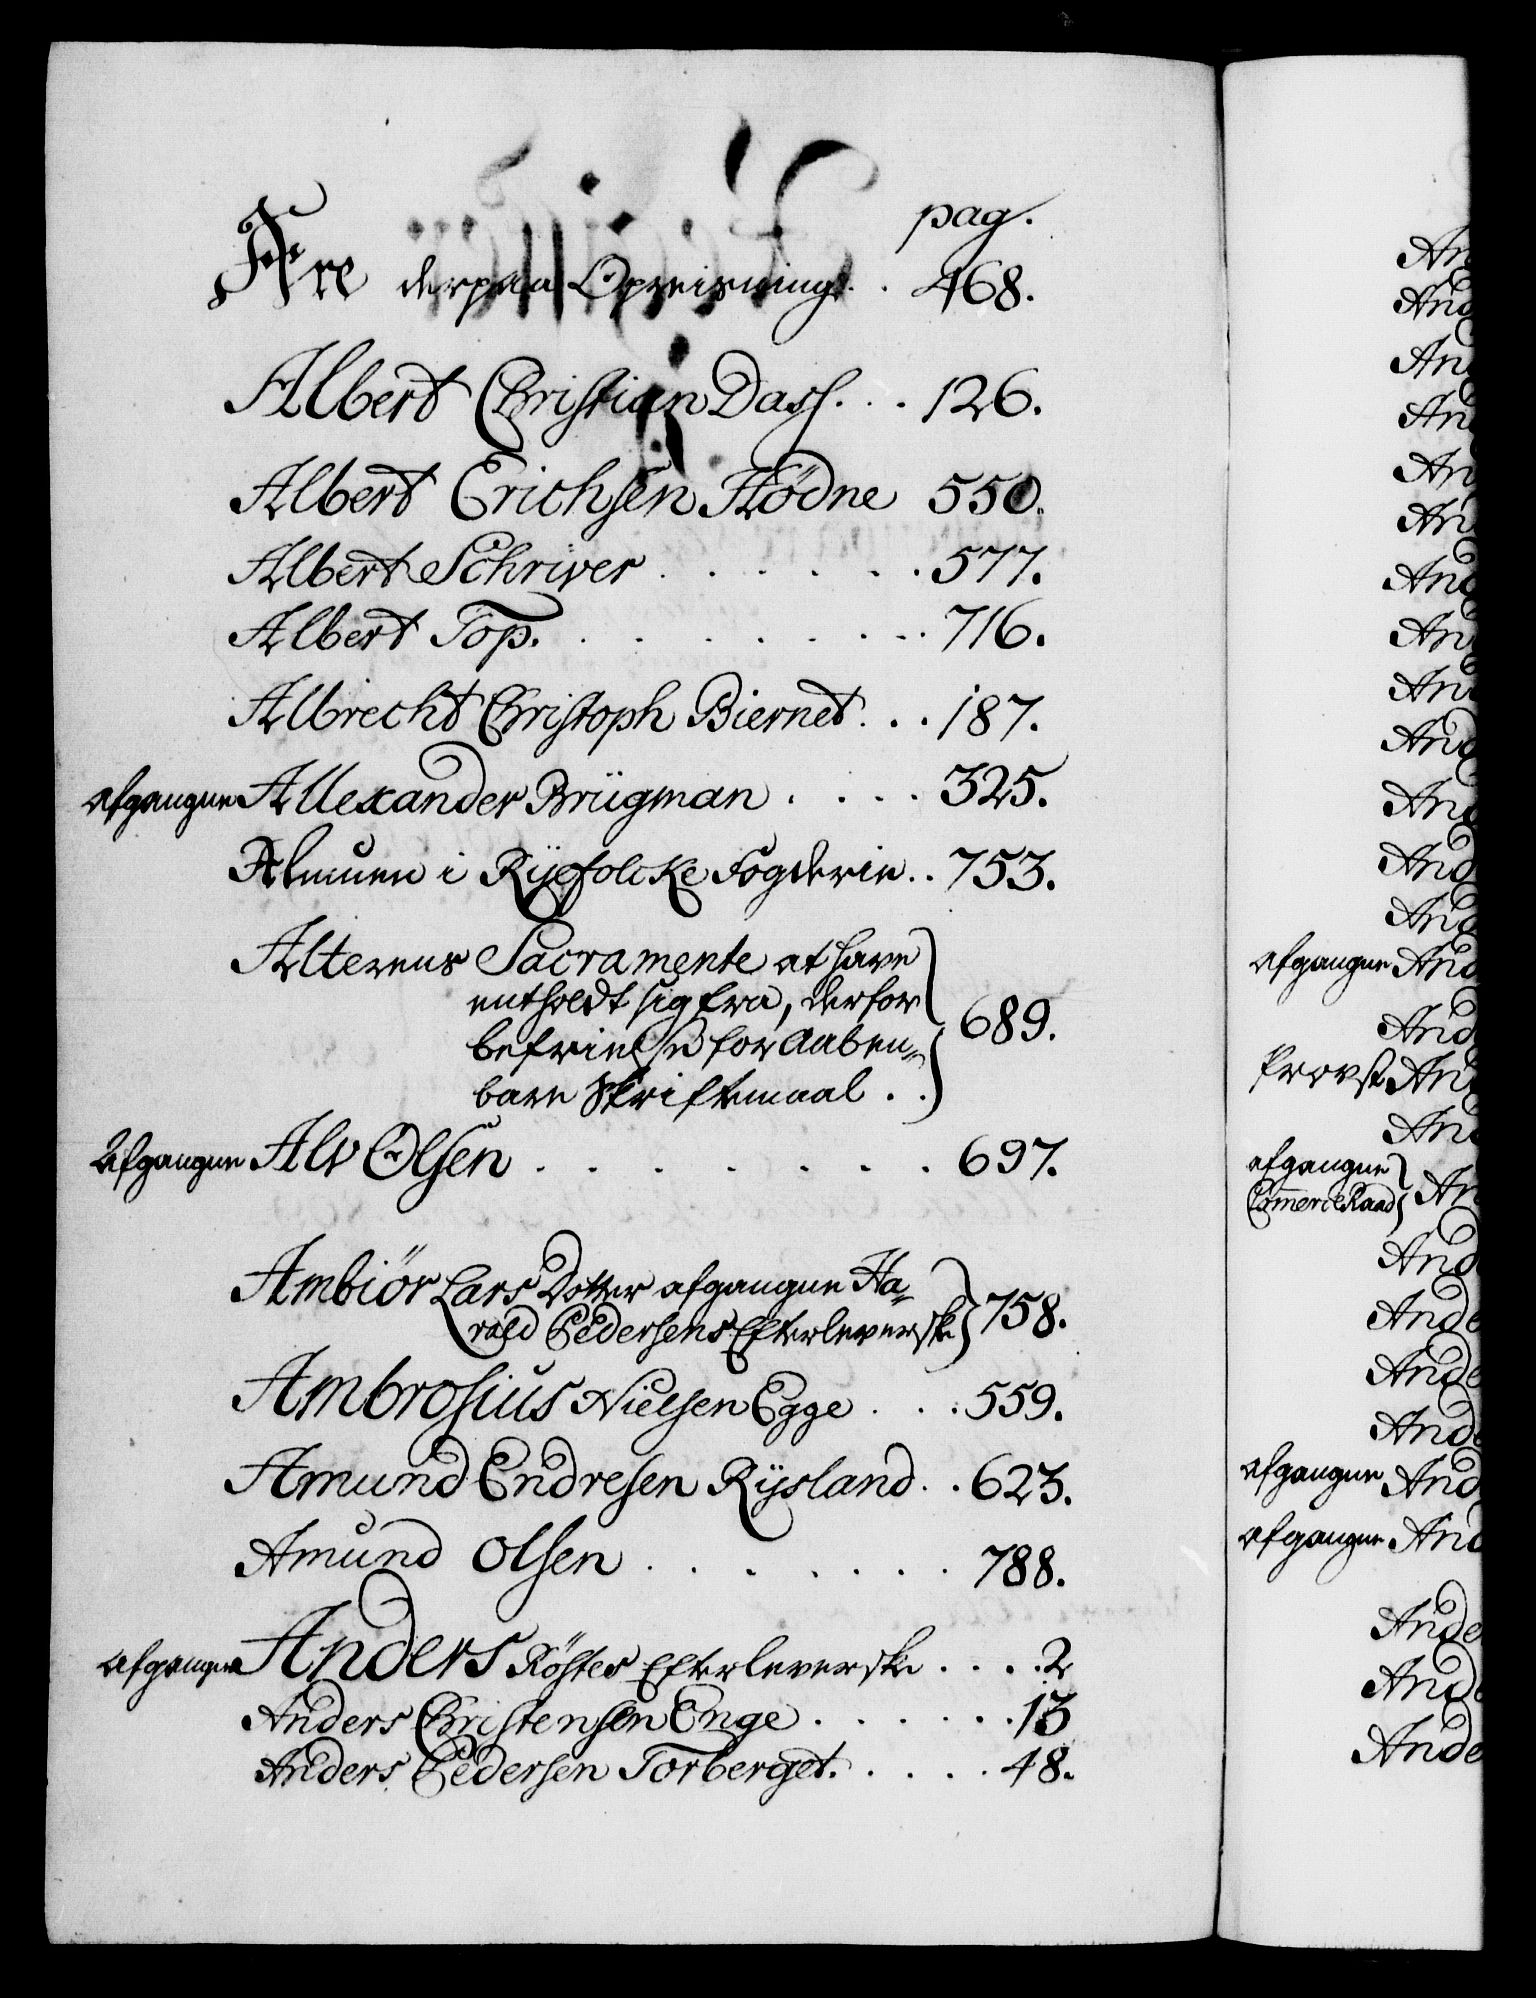 pag.
Ære derpaa Opreisning . . 468.
Albert Christian Dass . . . 126.
Albert Erichsen Hødne 550.
Albert Schriver . . . . . . 577.
Albert Top. . . . . . . . 716.
Albrecht Christoph Biernet . . . 187.
afgangne Allexander Brügman . . . . 325.
Almuen i Ryefolcke Fogderie . . 753.
Alterens Sacramente at have
entholdt sig fra, derfor
befrielse for Aaben-
bare Skriftemaal . . 689.
Afgangne Alv Olsen . . . . . . . . 697.
Ambiør Lars Dotter afgangne Ha-
rald Pedersens Efterleverske 758.
Ambrosius Nielsen Egge . . . 559.
Amund Endresen Rysland . . 623.
Amund Olsen . . . . . . . 788.
afgangne Anders Røstes Efterleverske . . . . 2
Anders Christensen Enge . . . . . . 13
Anders Pedersen Torberget. . . . . 48.
And
And
And
And
And
And
And
And
And
And
And
And
And
afgangne And
And
Provst And
And
afgangne
Commerce Raad An
And
Ande
Ande
Ande
afgangne And
afgangne And
Ande
Ande
Ande